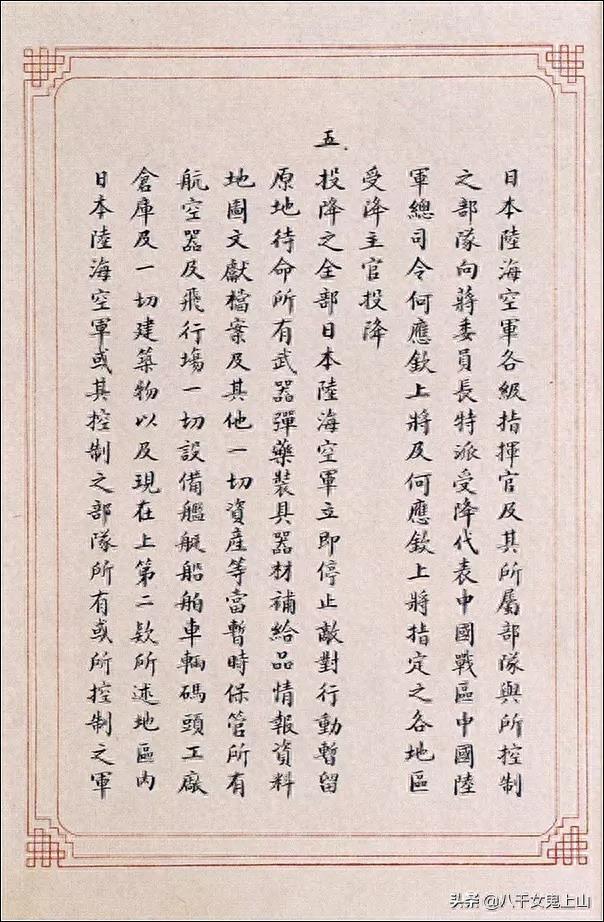 日本陸海空軍各級指揮官及其所屬部隊與所控制
之部隊向蔣委員長特派受降代表中國戰區中國陸
軍總司令何應欽上將及何應欽上將指定之各地區
受降主官投降
五.
投降之全部日本陸海空軍立即停止敵對行動暫留
原地待命所有武器彈藥裝具器材補給品情報資料
地圖文獻檔案及其他一切資產等當暫時保管所有
航空器及飛行場一切設備艦艇船舶車輛碼頭工廠
倉庫及一切建築物以及現在上第二款所述地區內
日本陸海空軍或其控制之部隊所有或所控制之軍
头条 @八千女鬼上山